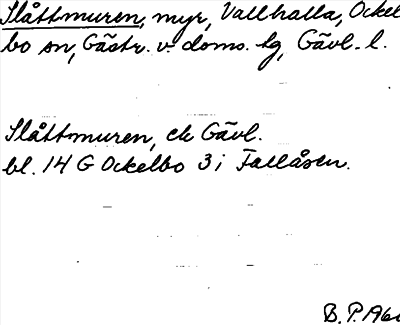 Slåttmuren, myr, Vallhalla, Ockel
bo sn, Gästr. v. doms. tg, Gävl. l.
Slåttmuren, ek Gävl.
bl. 14 G Ockelbo 3 i Fallåsen.
B. P. Abe